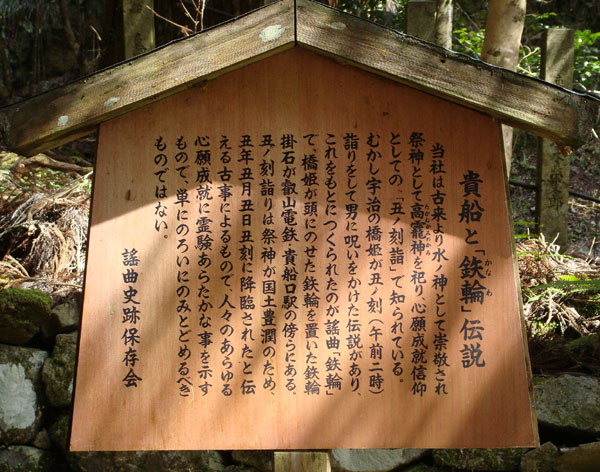 貴船と「鉄輪」伝説
当社は古来より水ノ神として崇敬され
祭神として高龗神を祀り、心願成就信仰
としての、「丑ノ刻詣」で知られている。
むかし宇治の橋姫が丑ノ刻(午前二時)
詣りをして男に呪いをかけた伝説があり、
これをもとにつくられたのが謡曲「鉄輪」
で、橋姫が頭にのせた鉄輪を置いた鉄輪
掛石が叡山電鉄・貴船口駅の傍らにある。
丑ノ刻詣りは祭神が国土豊潤のため、
丑年丑月丑日丑刻に降臨されたと伝
える古事によるもので、人々のあらゆる
心願成就に霊験あらたかな事を示す
もので、単にのろいにのみとどめるべき
ものではない。
謡曲史跡保存会